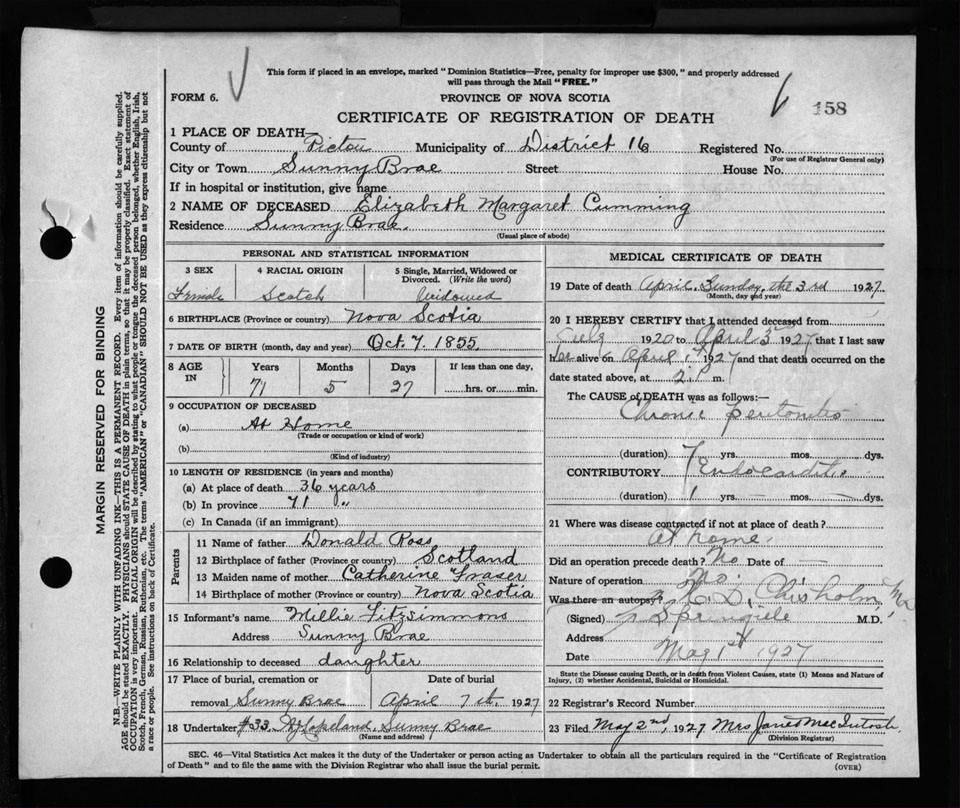 This form if placed in an envelope, marked "Dominion Statistics—Free, penalty for improper use $300," and properly addressed
will pass through the Mail "FREE."
FORM 6.
PROVINCE OF NOVA SCOTIA
158
CERTIFICATE OF REGISTRATION OF DEATH
1 PLACE OF DEATH—
County of Pictou Municipality of District 16 Registered No.
(For use of Registrar General only)
City or Town Sunny Brae Street House No.
If in hospital or institution, give name
2 NAME OF DECEASED Elizabeth Margaret Cumming
Residence Sunny Brae
(Usual place of abode)
PERSONAL AND STATISTICAL INFORMATION
3 SEX 4 RACIAL ORIGIN 5 Single, Married, Widowed or
Divorced. (Write the word)
Female Scotch Widowed
6 BIRTHPLACE (Province or country) Nova Scotia
7 DATE OF BIRTH (month, day and year) Oct. 7. 1855.
8 AGE IN Years Months Days If less than one day,
71 5 27 hrs. or min.
9 OCCUPATION OF DECEASED
(a) At Home
(Trade or occupation or kind of work)
(b)
(Kind of industry)
10 LENGTH OF RESIDENCE (in years and months)
(a) At place of death 36 years
(b) In province 71 "
(c) In Canada (if an immigrant)
Parents
11 Name of father Donald Ross
12 Birthplace of father (Province or country) Scotland
13 Maiden name of mother Catherine Fraser
14 Birthplace of mother (Province or country) Nova Scotia
15 Informant's name Millie Fitzsimmons
Address Sunny Brae
16 Relationship to deceased daughter
17 Place of burial, cremation or Date of burial
removal Sunny Brae April 7th. 1927
18 Undertaker #33. Copeland, Sunny Brae
(Name and address)
MEDICAL CERTIFICATE OF DEATH
19 Date of death April, Sunday, the 3rd 1927
(Month, day and year)
20 I HEREBY CERTIFY that I attended deceased from
July 1920 to April 3 1927 that I last saw
her alive on April 1st 1927 and that death occurred on the
date stated above, at 2 m.
The CAUSE of DEATH was as follows:—
Chronic peritonitis
(duration) 7 yrs. mos. dys.
CONTRIBUTORY Endocarditis
(duration) 1 yrs. — mos. — dys.
21 Where was disease contracted if not at place of death?
At home.
Did an operation precede death? No Date of —
Nature of operation No.
Was there an autopsy? D. Chisholm, MD
(Signed) Springville M.D.
Address
Date May 1st 1927
State the Disease causing Death, or in death from Violent Causes, state (1) Means and Nature of
Injury, (2) whether Accidental, Suicidal or Homicidal.
22 Registrars Record Number
23 Filed May 2nd, 1927 Mrs James MacIntosh
(Division Registrar)
SEC. 46—Vital Statistics Act makes it the duty of the Undertaker or person acting as Undertaker to obtain all the particulars required in the "Certificate of Registration
of Death" and to file the same with the Division Registrar who shall issue the burial permit. (OVER)
MARGIN RESERVED FOR BINDING
N.B.—WRITE PLAINLY WITH UNFADING INK—THIS IS A PERMANENT RECORD. Every item of information should be carefully supplied.
AGE should be stated EXACTLY. PHYSICIANS should STATE CAUSE OF DEATH in plain terms, so that it may be properly classified. Exact statement of
OCCUPATION is very important. RACIAL ORIGIN will be described by stating to what people or tongue the deceased person belonged, whether English, Irish,
Scotch, French, German, Russian, Ruthenian, etc. The terms "AMERICAN" or "CANADIAN" SHOULD NOT BE USED as they express citizenship but not
a race or people. See instructions on back of Certificate.